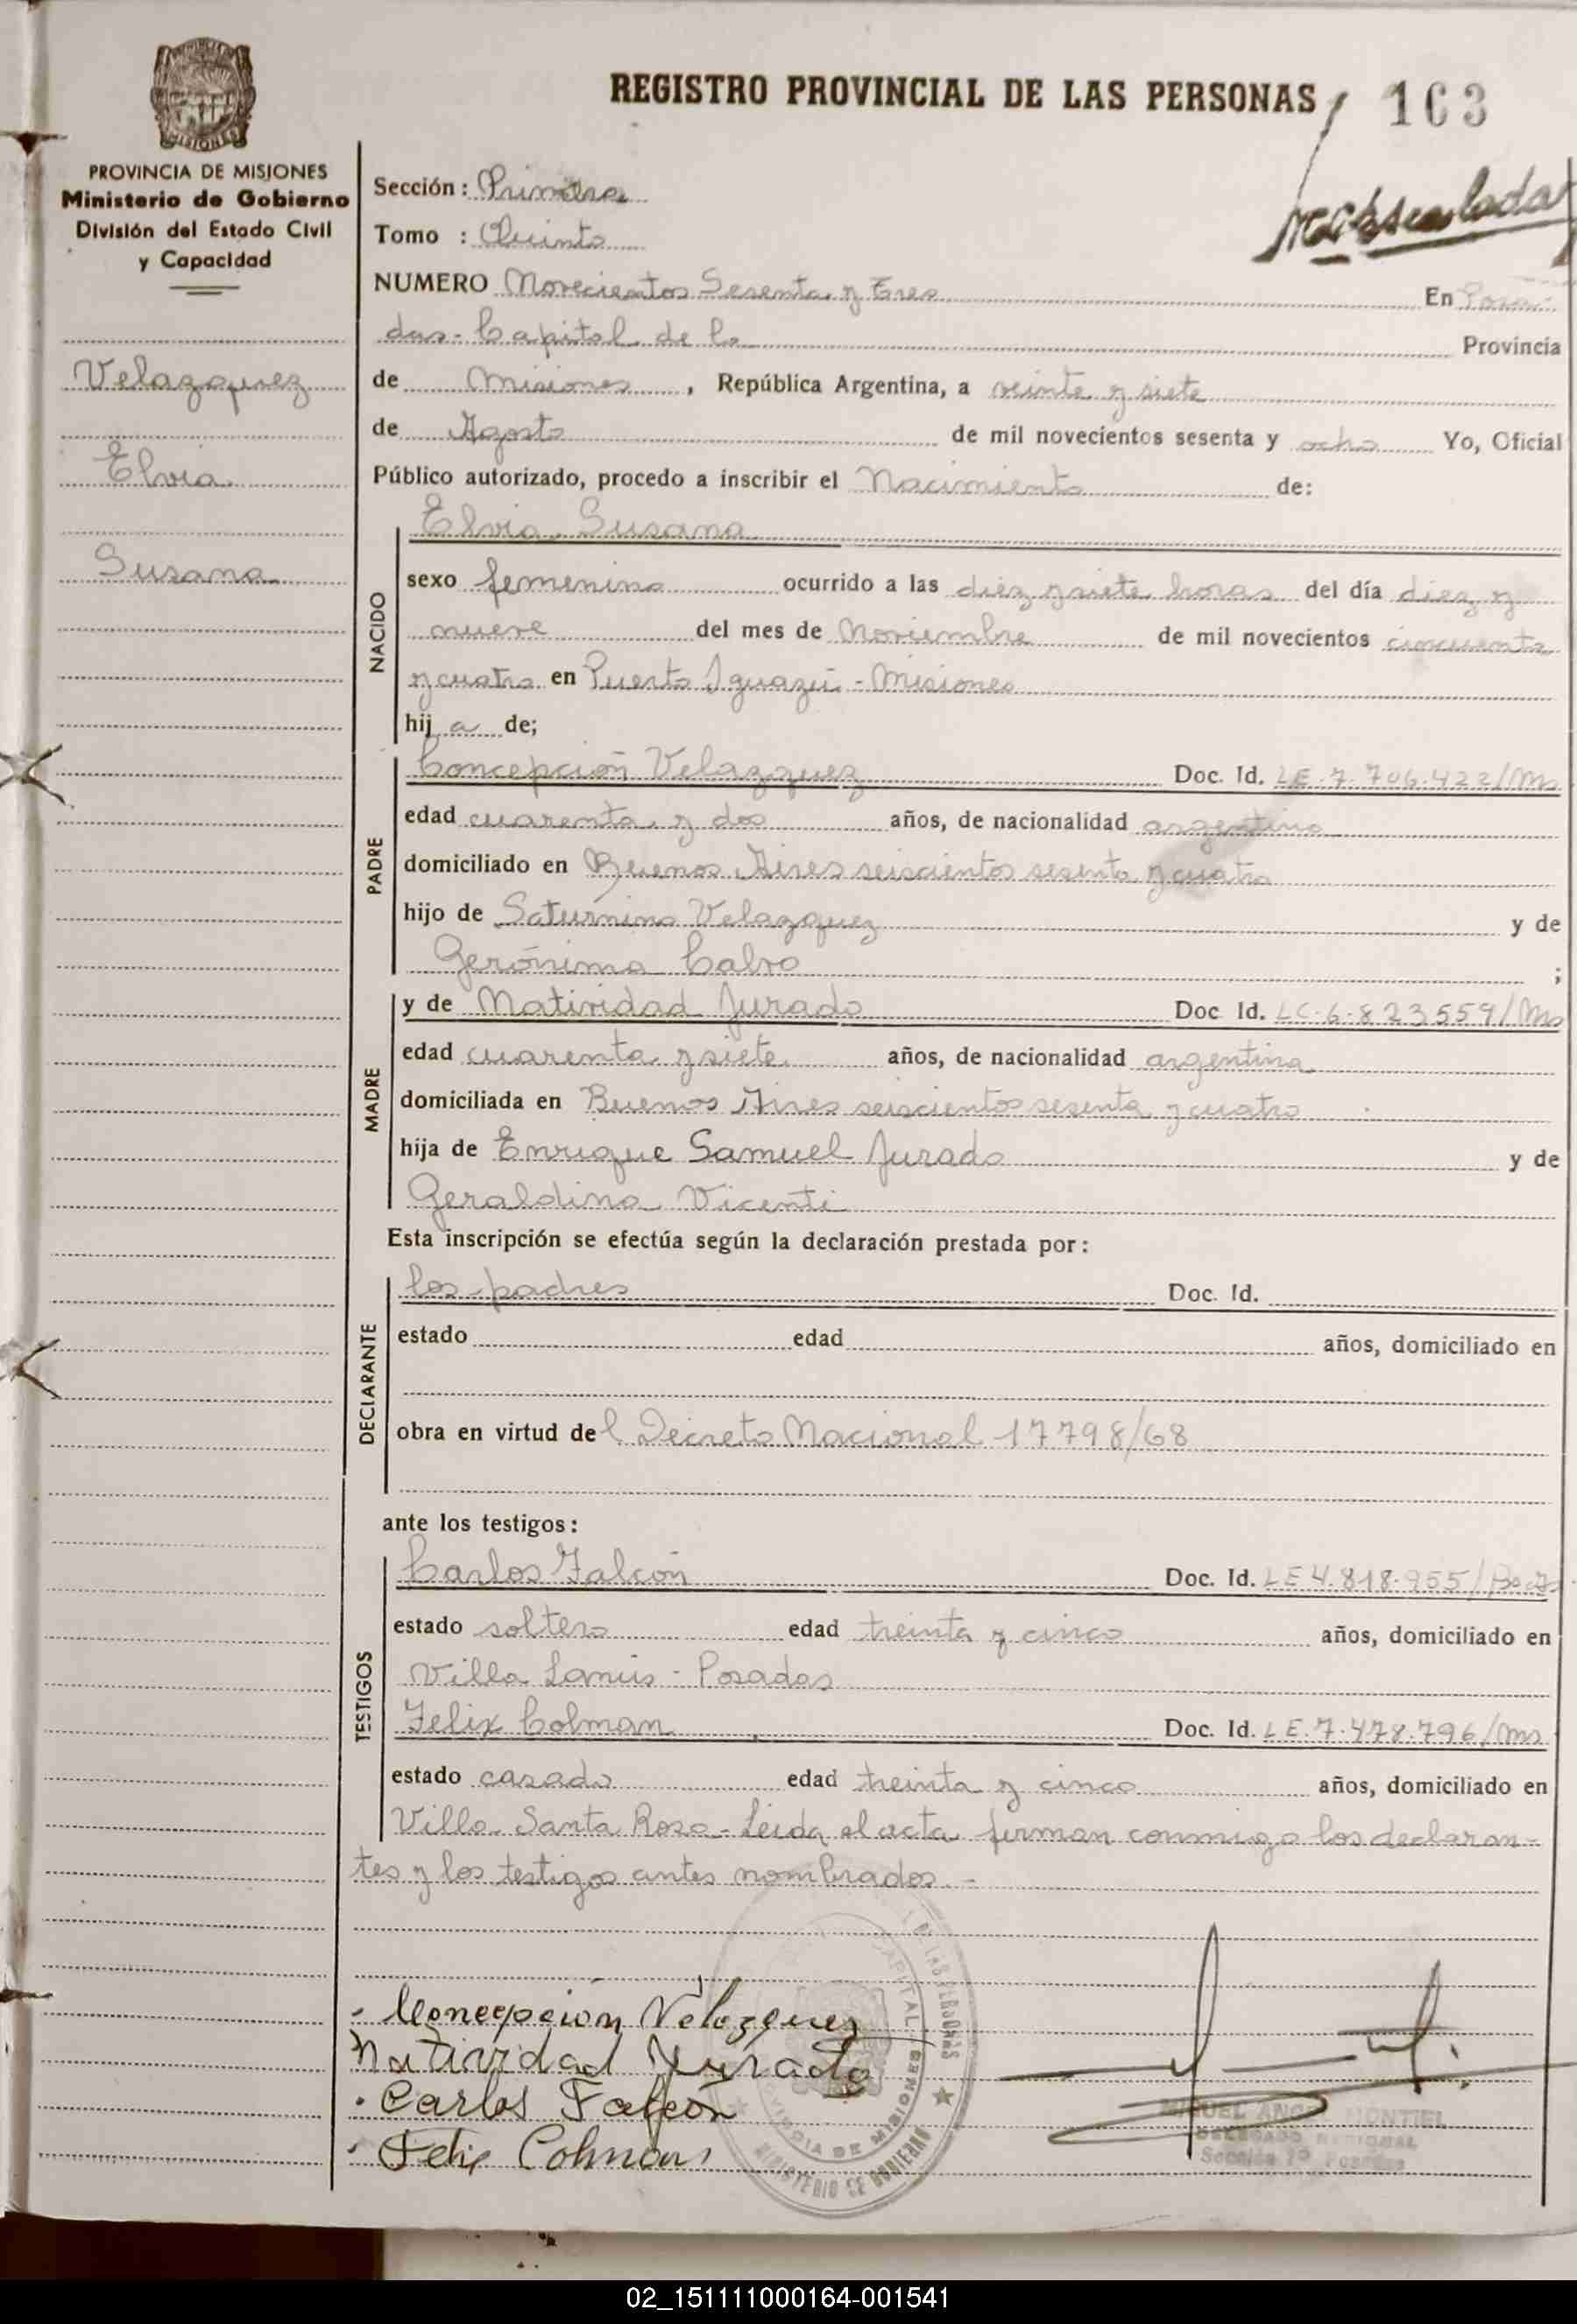 REGISTRO PROVINCIAL DE LAS PERSONAS
163
PROVINCIA DE MISIONES
Ministerio de Gobierno
División del Estado Civil
y Capacidad
Velazquez
Elvia
Susana
Sección: Primera
Tomo : Quinto
NUMERO Novecientos Sesenta y Tres En Posa
das - Capital de la Provincia
de Misiones, República Argentina, a veinte y siete
de Agosto de mil novecientos sesenta y ocho Yo, Oficial
Público autorizado, procedo a inscribir el Nacimiento de:
Elvia Susana
NACIDO
sexo femenino ocurrido a las diez y siete horas del día diez y
nueve del mes de Noviembre de mil novecientos cincuenta
y cuatro en Puerto Iguazú - Misiones
hij a de;
PADRE
Concepción Velazquez Doc. Id. LE.7.706.422/Ms
edad cuarenta y dos años, de nacionalidad argentino
domiciliado en Buenos Aires seiscientos sesenta y cuatro
hijo de Saturnino Velazquez y de
Gerónima Calvo ;
MADRE
y de Natividad Jurado Doc Id. LC.6.823559/Ms
edad cuarenta y siete años, de nacionalidad argentina
domiciliada en Buenos Aires seiscientos sesenta y cuatro
hija de Enrique Samuel Jurado y de
Geraldina Vicenti
Esta inscripción se efectúa según la declaración prestada por:
DECLARANTE
los padres Doc. Id.
estado edad años, domiciliado en
obra en virtud del Decreto Nacional 17798/68
ante los testigos:
TESTIGOS
Carlos Falcón Doc. Id. LE 4.818.955/
estado soltero edad treinta y cinco años, domiciliado en
Villa Lanús - Posadas
Felix Colman Doc. Id. LE.7.478.796/Ms
estado casado edad treinta y cinco años, domiciliado en
Villa Santa Rosa - Leida el acta firman conmigo los declaran-
tes y los testigos antes nombrados.-
Concepción Velazquez
Natividad Jurado
Carlos Falcón
Felix Colman
DE LAS PERSONAS
CAPITAL
PROVINCIA DE MISIONES
MINISTERIO DE GOBIERNO
MIGUEL ANGEL MONTIEL
DELEGADO REGIONAL
Sección 1ª Posadas
02_151111000164-001541